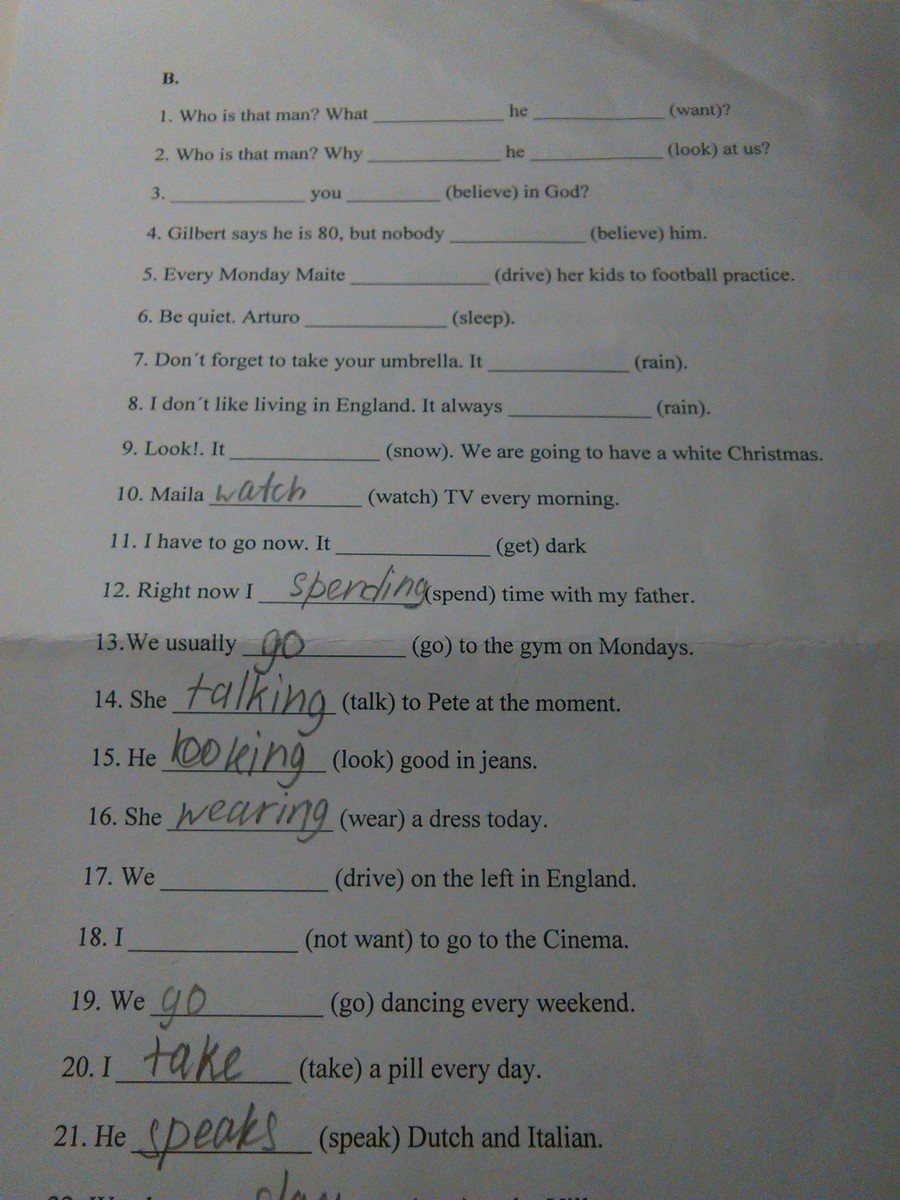 B.
1. Who is that man? What ____________ he ____________ (want)?
2. Who is that man? Why ____________ he ____________ (look) at us?
3. ____________ you ________ (believe) in God?
4. Gilbert says he is 80, but nobody ____________ (believe) him.
5. Every Monday Maite ____________ (drive) her kids to football practice.
6. Be quiet. Arturo ____________ (sleep).
7. Don´t forget to take your umbrella. It ____________ (rain).
8. I don´t like living in England. It always ____________ (rain).
9. Look!. It ____________ (snow). We are going to have a white Christmas.
10. Maila watch (watch) TV every morning.
11. I have to go now. It ____________ (get) dark
12. Right now I spending (spend) time with my father.
13. We usually go (go) to the gym on Mondays.
14. She talking (talk) to Pete at the moment.
15. He looking (look) good in jeans.
16. She wearing (wear) a dress today.
17. We ____________ (drive) on the left in England.
18. I ____________ (not want) to go to the Cinema.
19. We go (go) dancing every weekend.
20. I take (take) a pill every day.
21. He speaks (speak) Dutch and Italian.